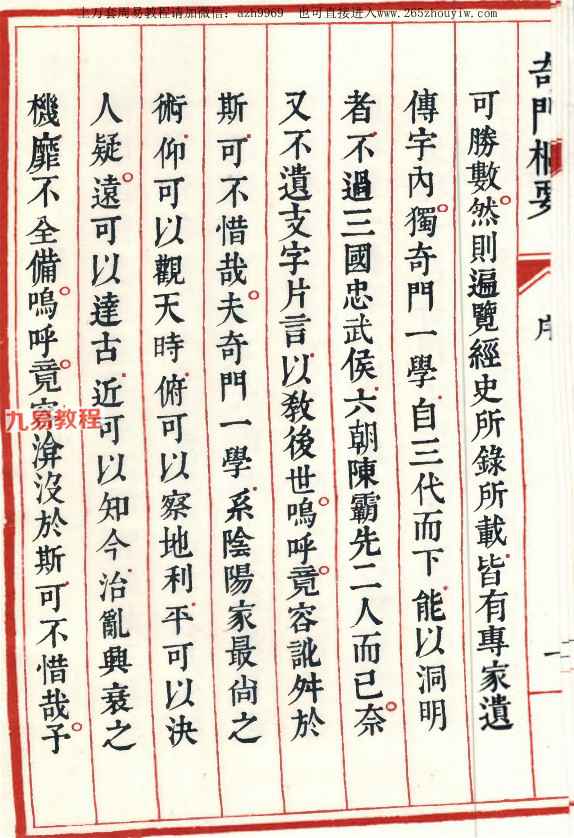 上万套周易教程请加微信：azh9969 也可直接进入www.265zhouyiw.com
奇門概要
序
一
可勝數。然則遍覽經史所錄所載，皆有專家遺
傳宇內。獨奇門一學，自三代而下，能以洞明
者，不過三國忠武侯，六朝陳霸先二人而已。奈
又不遺支字片言，以敎後世。嗚呼。竟容訛舛於
斯，可不惜哉。夫奇門一學，系陰陽家最尙之
術，仰可以觀天時，俯可以察地利，平可以決
人疑。遠可以達古，近可以知今，治亂興衰之
機，靡不全備。嗚呼。竟湮沒於斯，可不惜哉。予
九易教程